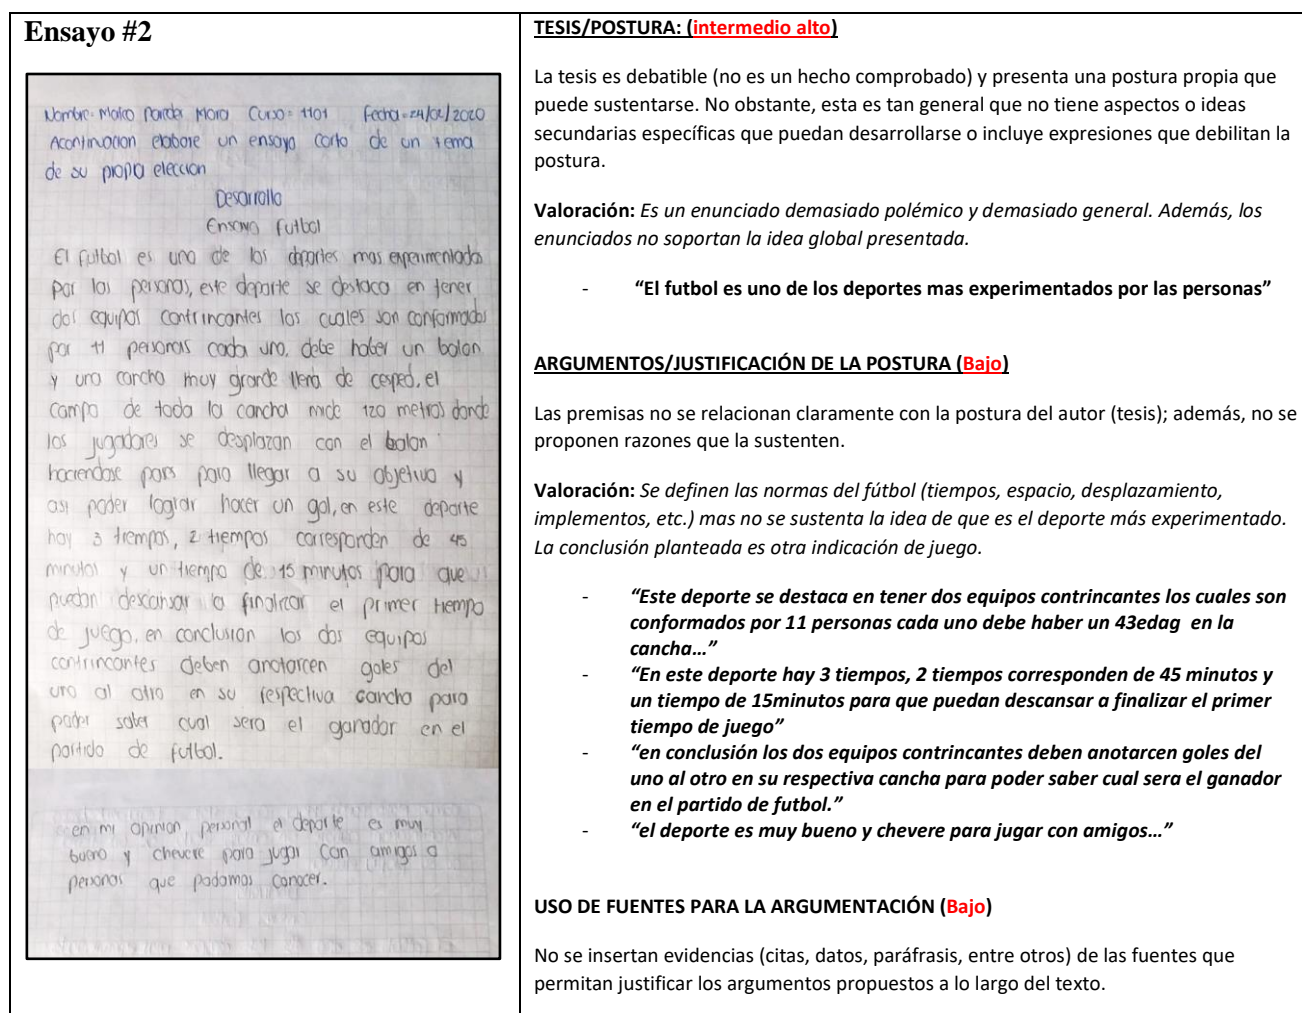 Ensayo #2
Nombre= Marco Pardo Mora Curso= 1101 Fecha=24/02/2020
Acontinuacion elabore un ensayo corto de un tema
de su propia eleccion
Desarrollo
Ensayo futbol
El futbol es uno de los deportes mas experimentados
por las personas, este deporte se destaca en tener
dos equipos contrincantes los cuales son conformados
por 11 personas cada uno, debe haber un balon
y una cancha muy grande llena de cesped, el
campo de toda la cancha mide 120 metros donde
los jugadores se desplazan con el balon
haciendose pases para llegar a su objetivo y
asi poder lograr hacer un gol, en este deporte
hay 3 tiempos, 2 tiempos corresponden de 45
minutos y un tiempo de 15 minutos para que
puedan descansar a finalizar el primer tiempo
de juego, en conclusion los dos equipos
contrincantes deben anotarcen goles del
uno al otro en su respectiva cancha para
poder saber cual sera el ganador en el
partido de futbol.
en mi opinion personal el deporte es muy
bueno y chevere para jugar con amigos o
personas que podamos conocer.
TESIS/POSTURA: (intermedio alto)
La tesis es debatible (no es un hecho comprobado) y presenta una postura propia que
puede sustentarse. No obstante, esta es tan general que no tiene aspectos o ideas
secundarias específicas que puedan desarrollarse o incluye expresiones que debilitan la
postura.
Valoración: Es un enunciado demasiado polémico y demasiado general. Además, los
enunciados no soportan la idea global presentada.
- “El futbol es uno de los deportes mas experimentados por las personas”
ARGUMENTOS/JUSTIFICACIÓN DE LA POSTURA (Bajo)
Las premisas no se relacionan claramente con la postura del autor (tesis); además, no se
proponen razones que la sustenten.
Valoración: Se definen las normas del fútbol (tiempos, espacio, desplazamiento,
implementos, etc.) mas no se sustenta la idea de que es el deporte más experimentado.
La conclusión planteada es otra indicación de juego.
- “Este deporte se destaca en tener dos equipos contrincantes los cuales son
conformados por 11 personas cada uno debe haber un 43edag en la
cancha…”
- “En este deporte hay 3 tiempos, 2 tiempos corresponden de 45 minutos y
un tiempo de 15minutos para que puedan descansar a finalizar el primer
tiempo de juego”
- “en conclusión los dos equipos contrincantes deben anotarcen goles del
uno al otro en su respectiva cancha para poder saber cual sera el ganador
en el partido de futbol.”
- “el deporte es muy bueno y chevere para jugar con amigos…”
USO DE FUENTES PARA LA ARGUMENTACIÓN (Bajo)
No se insertan evidencias (citas, datos, paráfrasis, entre otros) de las fuentes que
permitan justificar los argumentos propuestos a lo largo del texto.